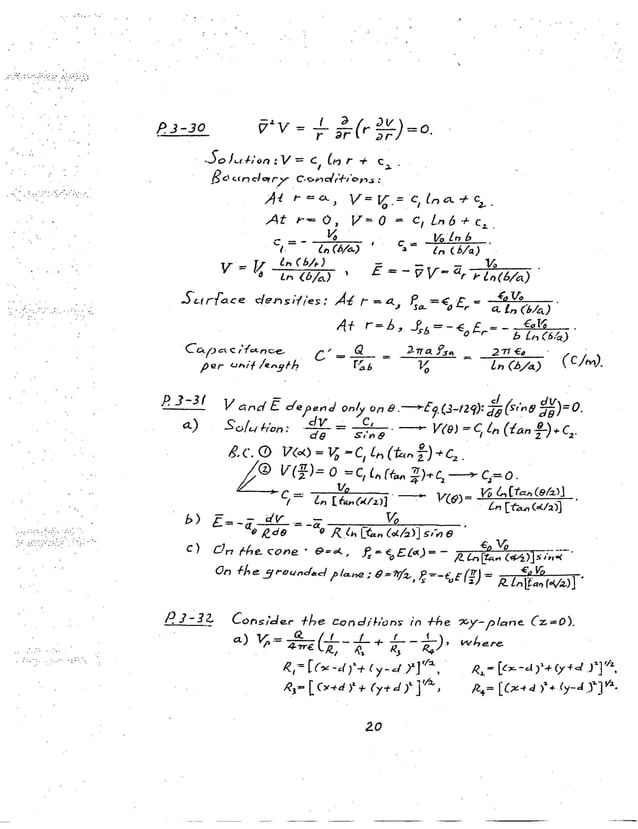 P.3-30 ∇̄²V = 1/r ∂/∂r (r ∂V/∂r) = 0.
Solution: V = c₁ ln r + c₂.
Boundary conditions:
At r = a, V = V₀ = c₁ ln a + c₂.
At r = 0, V = 0 = c₁ ln b + c₂.
c₁ = - V₀/ln(b/a), c₂ = V₀ ln b/ln(b/a).
V = V₀ ln(b/r)/ln(b/a), Ē = -∇̄V = ā_r V₀/(r ln(b/a)).
Surface densities: At r = a, ρ_sa = ε₀E_r = ε₀V₀/(a ln(b/a)).
At r = b, ρ_sb = -ε₀E_r = - ε₀V₀/(b ln(b/a)).
Capacitance per unit length C' = Q/V_ab = 2πaρ_sa/V₀ = 2πε₀/ln(b/a) (C/m).
P.3-31 V and Ē depend only on θ. → Eq.(3-129): d/dθ (sinθ dV/dθ) = 0.
a) Solution: dV/dθ = C₁/sinθ → V(θ) = C₁ ln(tan θ/2) + C₂.
B.C. ① V(α) = V₀ = C₁ ln(tan α/2) + C₂.
② V(π/2) = 0 = C₁ ln(tan π/4) + C₂ → C₂ = 0.
→ C₁ = V₀/ln[tan(α/2)] → V(θ) = V₀ ln[tan(θ/2)]/ln[tan(α/2)].
b) Ē = -ā_θ dV/(R dθ) = -ā_θ V₀/(R ln[tan(α/2)] sinθ).
c) On the cone: θ = α, ρ_s = ε₀E(α) = - ε₀V₀/(R ln[tan(α/2)] sinα).
On the grounded plane: θ = π/2, ρ_s = -ε₀E(π/2) = ε₀V₀/(R ln[tan(α/2)]).
P.3-32 Consider the conditions in the xy-plane (z=0).
a) V_P = Q/4πε (1/R₁ - 1/R₂ + 1/R₃ - 1/R₄), where
R₁ = [(x-d)²+(y-d)²]^1/2, R₂ = [(x-d)²+(y+d)²]^1/2,
R₃ = [(x+d)²+(y+d)²]^1/2, R₄ = [(x+d)²+(y-d)²]^1/2.
20